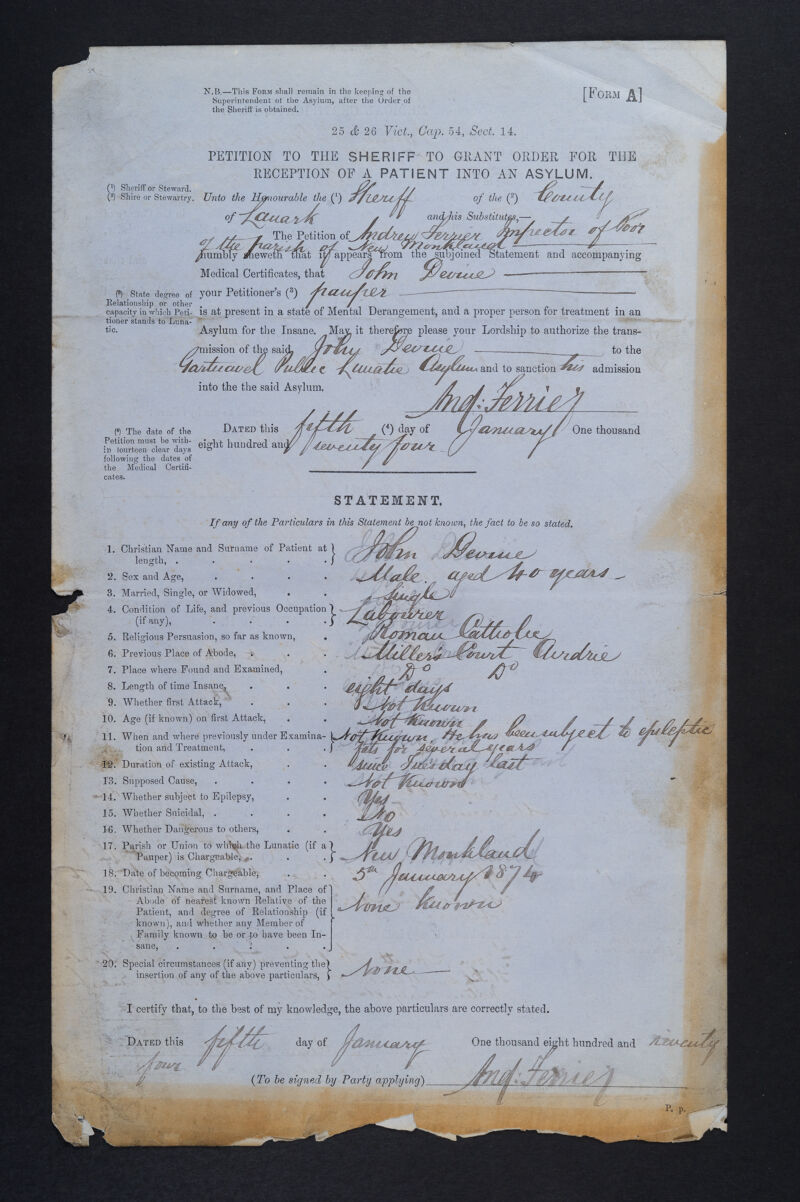 N.B.—This Form shall remain in the keeping of the
Superintendent of the Asylum, after the Order of
the Sheriff is obtained.
[Form A]
25 & 26 Vict., Cap. 54, Sect. 14.
PETITION TO THE SHERIFF TO GRANT ORDER FOR THE
RECEPTION OF A PATIENT INTO AN ASYLUM.
(¹) Sheriff or Steward.
(²) Shire or Stewartry.
Unto the Honourable the (¹) Sheriff of the (²) County
of Lanark and his Substitutes,—
The Petition of Andrew Ferrier Inspector of Poor
of the parish of New Monkland
humbly sheweth that it appears from the subjoined Statement and accompanying
Medical Certificates, that John Devine
(³) State degree of
Relationship or other
capacity in which Peti-
tioner stands to Luna-
tic.
your Petitioner's (³) pauper
is at present in a state of Mental Derangement, and a proper person for treatment in an
Asylum for the Insane. May it therefore please your Lordship to authorize the trans-
mission of the said John Devine to the
Gartnavel Public Lunatic Asylum and to sanction his admission
into the the said Asylum.
And: Ferrier
(⁴) The date of the
Petition must be with-
in fourteen clear days
following the dates of
the Medical Certifi-
cates.
Dated this fifth (⁴) day of January One thousand
eight hundred and seventy four
STATEMENT.
If any of the Particulars in this Statement be not known, the fact to be so stated.
1. Christian Name and Surname of Patient at
length, . . . . . John Devine
2. Sex and Age, . . . . Male. aged 40 years
3. Married, Single, or Widowed, . . Single
4. Condition of Life, and previous Occupation
(if any), . . . . Labourer
5. Religious Persuasion, so far as known, . Roman Catholic
6. Previous Place of Abode, . . . Millers Court Airdrie
7. Place where Found and Examined, . Do Do
8. Length of time Insane, . . . eight days
9. Whether first Attack, . . . Not Known
10. Age (if known) on first Attack, . . Not Known
11. When and where previously under Examina-
tion and Treatment, . . . Not Known, He has been subject to epileptic
fits for several years
12. Duration of existing Attack, . . since Tuesday last
13. Supposed Cause, . . . . Not Known
14. Whether subject to Epilepsy, . . Yes
15. Whether Suicidal, . . . . No
16. Whether Dangerous to others, . . Yes
17. Parish or Union to which the Lunatic (if a
Pauper) is Chargeable, . . . New Monkland
18. Date of becoming Chargeable, . . 5th January 1874
19. Christian Name and Surname, and Place of
Abode of nearest known Relative of the
Patient, and degree of Relationship (if
known), and whether any Member of
Family known to be or to have been In-
sane, . . . . . None Known
20. Special circumstances (if any) preventing the
insertion of any of the above particulars, None
I certify that, to the best of my knowledge, the above particulars are correctly stated.
Dated this fifth day of January One thousand eight hundred and seventy
four
(To be signed by Party applying) And: Ferrier
P. p.